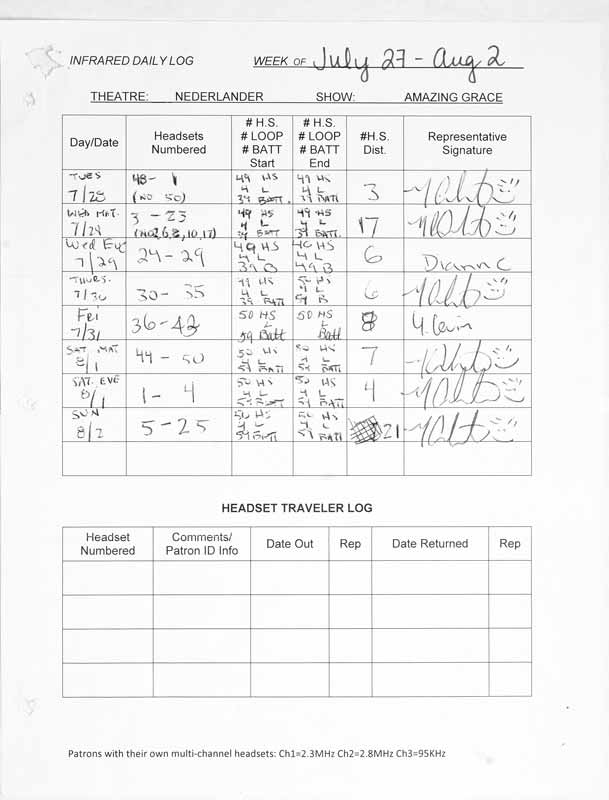 INFRARED DAILY LOG WEEK OF July 27 - Aug 2
THEATRE: NEDERLANDER SHOW: AMAZING GRACE
Day/Date Headsets Numbered # H.S. # LOOP # BATT Start # H.S. # LOOP # BATT End #H.S. Dist. Representative Signature
TUES 7/28 48- 1 (NO 50) 49 HS 4 L 39 BATT. 49 HS 4 L 39 BATT 3
WED MAT. 7/29 3 - 23 49 HS 4 L 49 HS 4 L BATT. 17
Wed Eve 7/29 24 - 29 49 HS 4 L 4 L 49 B 6 Diann C
THURS. 7/30 30 - 35 49 HS 4 L BATT 50 HS 4 L 6
Fri 7/31 36 - 42 50 HS L 59 Batt 50 HS L Batt 8
SAT MAT 8/1 44 - 50 50 HS 4 L 59 BATT 50 HS 4 L 59 BATT 7
SAT. EVE 8/1 1 - 4 50 HS 4 L 50 HS 4 L 59 BATT 4
SUN 8/2 5 - 25 50 HS 4 L 59 BATT 50 HS 4 L 59 BATT 21
HEADSET TRAVELER LOG
Headset Numbered Comments/ Patron ID Info Date Out Rep Date Returned Rep
Patrons with their own multi-channel headsets: Ch1=2.3MHz Ch2=2.8MHz Ch3=95KHz